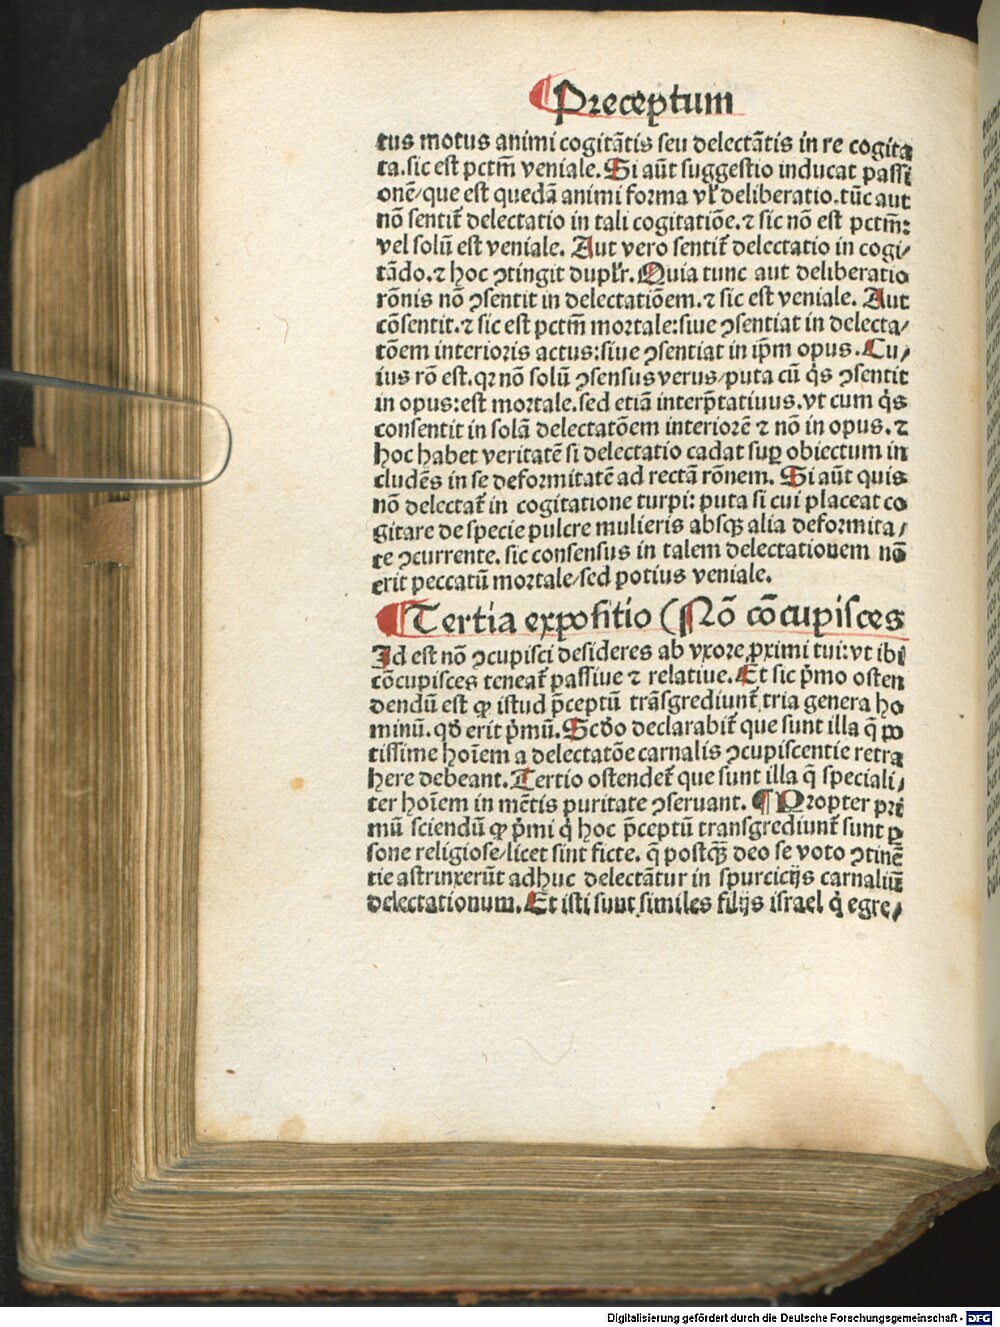 ¶Preceptum
tus motus animi cogitãtis seu delectãtis in re cogita
ta.sic est pctm̃ veniale.Si aũt suggestio inducat passi
onẽ/que est quedã animi forma vľ deliberatio.tũc aut
nõ sentit̃ delectatio in tali cogitatiõe.⁊ sic nõ est pctm̃:
vel solũ est veniale. Aut vero sentit̃ delectatio in cogi/
tãdo.⁊ hoc ꝯtingit dupľr. Quia tunc aut deliberatio
rõnis nõ ꝯsentit in delectatiõem.⁊ sic est veniale. Aut
cõsentit.⁊ sic est pctm̃ mortale:siue ꝯsentiat in delecta/
tõem interioris actus:siue ꝯsentiat in ip̃m opus.Cu/
ius rõ est.qꝛ nõ solũ ꝯsensus verus/puta cũ q̇s ꝯsentit
in opus:est mortale.sed etiã interp̃tatiuus.vt cum q̇s
consentit in solã delectatõem interiorẽ ⁊ nõ in opus.⁊
hoc habet veritatẽ si delectatio cadat suꝑ obiectum in
cludẽs in se deformitatẽ ad rectã rõnem. Si aũt quis
nõ delectat̃ in cogitatione turpi: puta si cui placeat co
gitare de specie pulcre mulieris absqꝫ alia deformita/
te ꝯcurrente. sic consensus in talem delectationem nõ
erit peccatũ mortale/sed potius veniale.
¶Tertia expositio (Nõ cõcupisces
Id est nõ ꝯcupisci desideres ab vxore ꝓximi tui:vt ibi
cõcupisces teneat̃ passiue ⁊ relatiue.Et sic p̃mo osten
dendũ est ꝙ istud p̃ceptũ trãsgrediunt̃ tria genera ho
minũ.qď erit p̃mũ.Scďo declarabit̃ que sunt illa q̃ po
tissime hoĩem a delectatõe carnalis ꝯcupiscentie retra
here debeant.Tertio ostendet̃ que sunt illa q̃ speciali/
ter hoĩem in mẽtis puritate ꝯseruant. ¶Propter pri
mũ sciendũ ꝙ p̃mi q̇ hoc p̃ceptũ transgrediunt̃ sunt ꝑ
sone religiose/licet sint ficte. q̃ postqꝫ̃ deo se voto ꝯtinẽ
tie astrinxerũt adhuc delectãtur in spurcicijs carnaliũ
delectationum.Et isti sunt similes filijs israel q̇ egre/
Digitalisierung gefördert durch die Deutsche Forschungsgemeinschaft - DFG